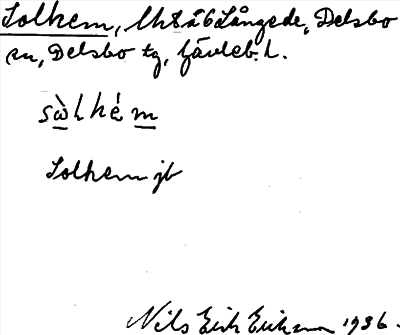 Solhem, lht å 6 Långede, Delsbo
sn, Delsbo tg, Gävleb. l.
sὼlhém
Solhem jb
Nils Erik Eriksson 1936.